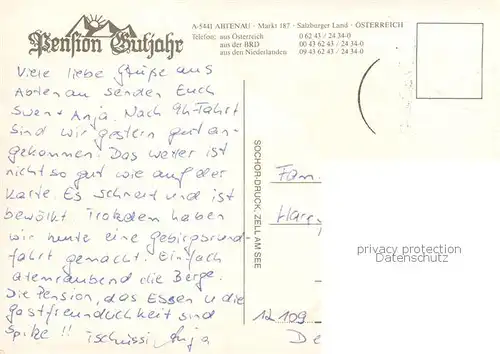 Pension Gutjahr
A-5441 ABTENAU · Markt 187 · Salzburger Land · ÖSTERREICH
Telefon: aus Österreich 0 62 43 / 24 34-0
aus der BRD 00 43 62 43 / 24 34-0
aus den Niederlanden 09 43 62 43 / 24 34-0
Viele liebe Grüße aus
Abtenau senden Euch
Swen + Anja. Nach 9h Fahrt
sind wir gestern gut an-
gekommen. Das Wetter ist
nicht so gut wie auf der
Karte. Es schneit und ist
bewölkt. Trotzdem haben
wir heute eine Gebirgsrund-
fahrt gemacht. Einfach
atemraubend die Berge.
Die Pension, das Essen u die
Gastfreundlichkeit sind
Spitze !! Tschüssi Anja
SOCHOR-DRUCK, ZELL AM SEE
Fam.
privacy protection
Datenschutz
12109